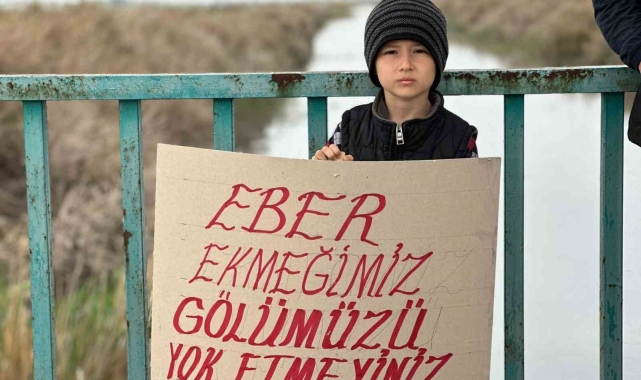 EBER
EKMEĞİMİZ
GÖLÜMÜZÜ
YOK ETMEYİNİZ